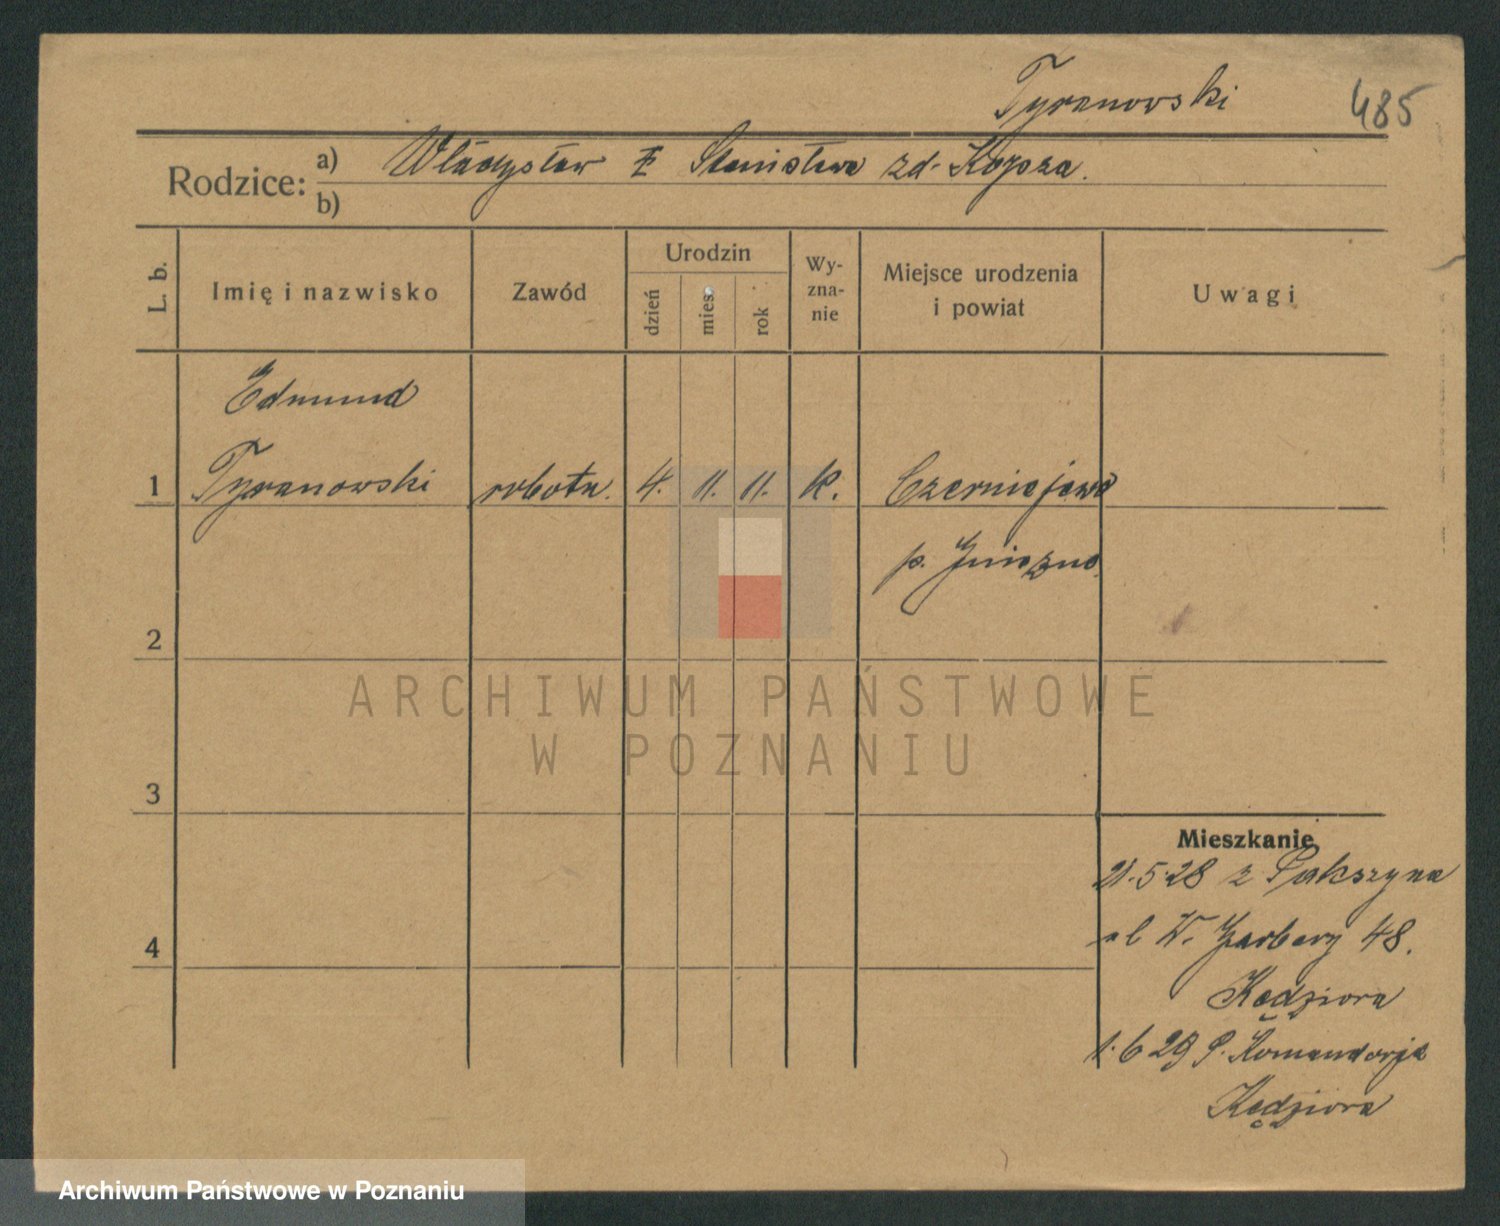 Tyranowski 485
Rodzice: a) Władysław Stanisława zd. Kopsza.
b)
L. b. Imię i nazwisko Zawód Urodzin dzień mies. rok Wy-zna-nie Miejsce urodzenia i powiat Uwagi
Edmund
1 Tyranowski robotn. 4. 11. 11. k. Czerniejewo
p. Gniezno
2
ARCHIWUM PAŃSTWOWE
W POZNANIU
3
Mieszkanie
21.5.28 z Pakszyna
W. Garbary 48.
4
Kędziora
1.6 29 P. Komandorja
Kędziora
Archiwum Państwowe w Poznaniu